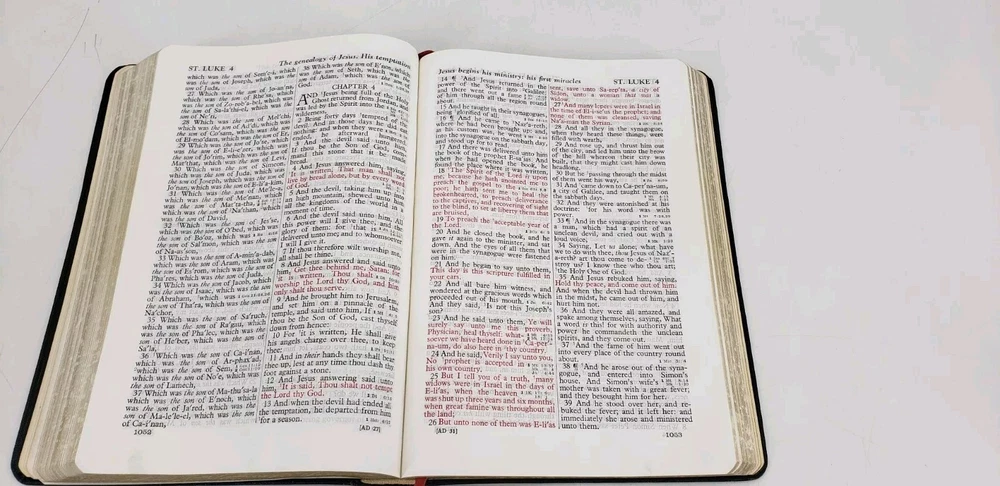 ST. LUKE 4
The genealogy of Jesus. His temptation
which was the son of Sem'e-i, which
was the son of Joseph, which was the son
of Juda,
27 Which was the son of Jo-an'na,
which was the son of Rhe'sa, which
was the son of Zo-rob'a-bel, which was
the son of Sa-la'thi-el, which was the son
of Ne'ri,
28 Which was the son of Mel'chi,
which was the son of Ad'di, which was
the son of Co'sam, which was the son
of El-mo'dam, which was the son of Er,
29 Which was the son of Jo'se, which
was the son of E-li-e'zer, which was the
son of Jo'rim, which was the son of
Mat'that, which was the son of Levi,
30 Which was the son of Simeon,
which was the son of Juda, which was
the son of Joseph, which was the son of
Jo'nan, which was the son of E-li'a-kim,
31 Which was the son of Me'le-a,
which was the son of Me'nan, which
was the son of Mat'ta-tha, which
was the son of Na'than, which was
the son of David,
32 Which was the son of Jes'se,
which was the son of O'bed, which was
the son of Bo'oz, which was the son
of Sal'mon, which was the son
of Na-as'son,
33 Which was the son of A-min'a-dab,
which was the son of Aram, which was
the son of Es'rom, which was the son of
Pha'res, which was the son of Juda,
34 Which was the son of Jacob, which
was the son of Isaac, which was the son
of Abraham, which was the son
of Tha'ra, which was the son of
Na'chor,
35 Which was the son of Sa'ruch,
which was the son of Ra'gau, which
was the son of Pha'lec, which was the son
of He'ber, which was the son of
Sa'la,
36 Which was the son of Ca-i'nan,
which was the son of Ar-phax'ad,
which was the son of Sem, which
was the son of No'e, which was the son
of Lamech,
37 Which was the son of Ma-thu'sa-la
which was the son of E'noch, which
was the son of Ja'red, which was the son
of Ma-le'le-el, which was the son
of Ca-i'nan,
1052
38 Which was the son of E'nos, which
was the son of Seth, which was the son
of Adam, which was the son of
God.
CHAPTER 4
AND Jesus being full of the Holy
Ghost returned from Jordan, and
was led by the Spirit into the
wilderness,
2 Being forty days tempted of the
devil. And in those days he did eat
nothing: and when they were
ended, he afterward hungered.
3 And the devil said unto him,
If thou be the Son of God, com-
mand this stone that it be made
bread.
4 And Jesus answered him, saying,
It is written, That man shall not
live by bread alone, but by every word
of God.
5 And the devil, taking him up into
an high mountain, shewed unto him
all the kingdoms of the world in a
moment of time.
6 And the devil said unto him, All
this power will I give thee, and the
glory of them: for that is
delivered unto me; and to whomsoever
I will I give it.
7 If thou therefore wilt worship me,
all shall be thine.
8 And Jesus answered and said unto
him, Get thee behind me, Satan: for
it is written, Thou shalt
worship the Lord thy God, and him
only shalt thou serve.
9 And he brought him to Jerusalem,
and set him on a pinnacle of the
temple, and said unto him, If
thou be the Son of God, cast thyself
down from hence:
10 For it is written, He shall give
his angels charge over thee, to keep
thee:
11 And in their hands they shall bear
thee up, lest at any time thou dash thy
foot against a stone.
12 And Jesus answering said unto
him, It is said, Thou shalt not tempt
the Lord thy God.
13 And when the devil had ended all
the temptation, he departed from him
for a season.
[AD 27]
Jesus begins his ministry: his first miracles
ST. LUKE 4
14 ¶ And Jesus returned in the
power of the Spirit into Galilee:
and there went out a fame
of him through all the region round
about.
15 And he taught in their synagogues,
being glorified of all.
16 ¶ And he came to Naz'a-reth,
where he had been brought up: and,
as his custom was, he went
into the synagogue on the sabbath day,
and stood up for to read.
17 And there was delivered unto him
the book of the prophet E-sa'ias. And
when he had opened the book, he
found the place where it was written,
18 The Spirit of the Lord is upon
me, because he hath anointed me to
preach the gospel to the
poor; he hath sent me to heal the
brokenhearted, to preach deliverance
to the captives, and recovering of sight
to the blind, to set at liberty them that
are bruised,
19 To preach the acceptable year of
the Lord.
20 And he closed the book, and he
gave it again to the minister, and sat
down. And the eyes of all them that
were in the synagogue were fastened
on him.
21 And he began to say unto them,
This day is this scripture fulfilled in
your ears.
22 And all bare him witness, and
wondered at the gracious words which
proceeded out of his mouth.
And they said, Is not this Joseph's
son?
23 And he said unto them, Ye will
surely say unto me this proverb,
Physician, heal thyself: what-
soever we have heard done in Ca-per'-
na-um, do also here in thy country.
24 And he said, Verily I say unto you,
No prophet is accepted in
his own country.
25 But I tell you of a truth, many
widows were in Israel in the days of
E-li'as, when the heaven
was shut up three years and six months,
when great famine was throughout all
the land;
26 But unto none of them was E-li'as
[AD 31]
sent, save unto Sa-rep'ta, a city of
Sidon, unto a woman that was a
widow.
27 And many lepers were in Israel in
the time of El-i-se'us the prophet; and
none of them was cleansed, saving
Na'a-man the Syrian.
28 And all they in the synagogue,
when they heard these things, were
filled with wrath,
29 And rose up, and thrust him out
of the city, and led him unto the brow
of the hill whereon their city was
built, that they might cast him down
headlong.
30 But he passing through the midst
of them went his way,
31 And came down to Ca-per'na-um,
a city of Galilee, and taught them on
the sabbath days.
32 And they were astonished at his
doctrine: for his word was with
power.
33 ¶ And in the synagogue there was
a man, which had a spirit of an
unclean devil, and cried out with a
loud voice,
34 Saying, Let us alone; what have
we to do with thee, thou Jesus of Naz'-
a-reth? art thou come to de-
stroy us? I know thee who thou art;
the Holy One of God.
35 And Jesus rebuked him, saying,
Hold thy peace, and come out of him.
And when the devil had thrown him
in the midst, he came out of him, and
hurt him not.
36 And they were all amazed, and
spake among themselves, saying, What
a word is this! for with authority and
power he commandeth the unclean
spirits, and they come out.
37 And the fame of him went out
into every place of the country round
about.
38 ¶ And he arose out of the syna-
gogue, and entered into Simon's
house. And Simon's wife's
mother was taken with a great fever;
and they besought him for her.
39 And he stood over her, and re-
buked the fever; and it left her: and
immediately she arose and ministered
unto them.
1053